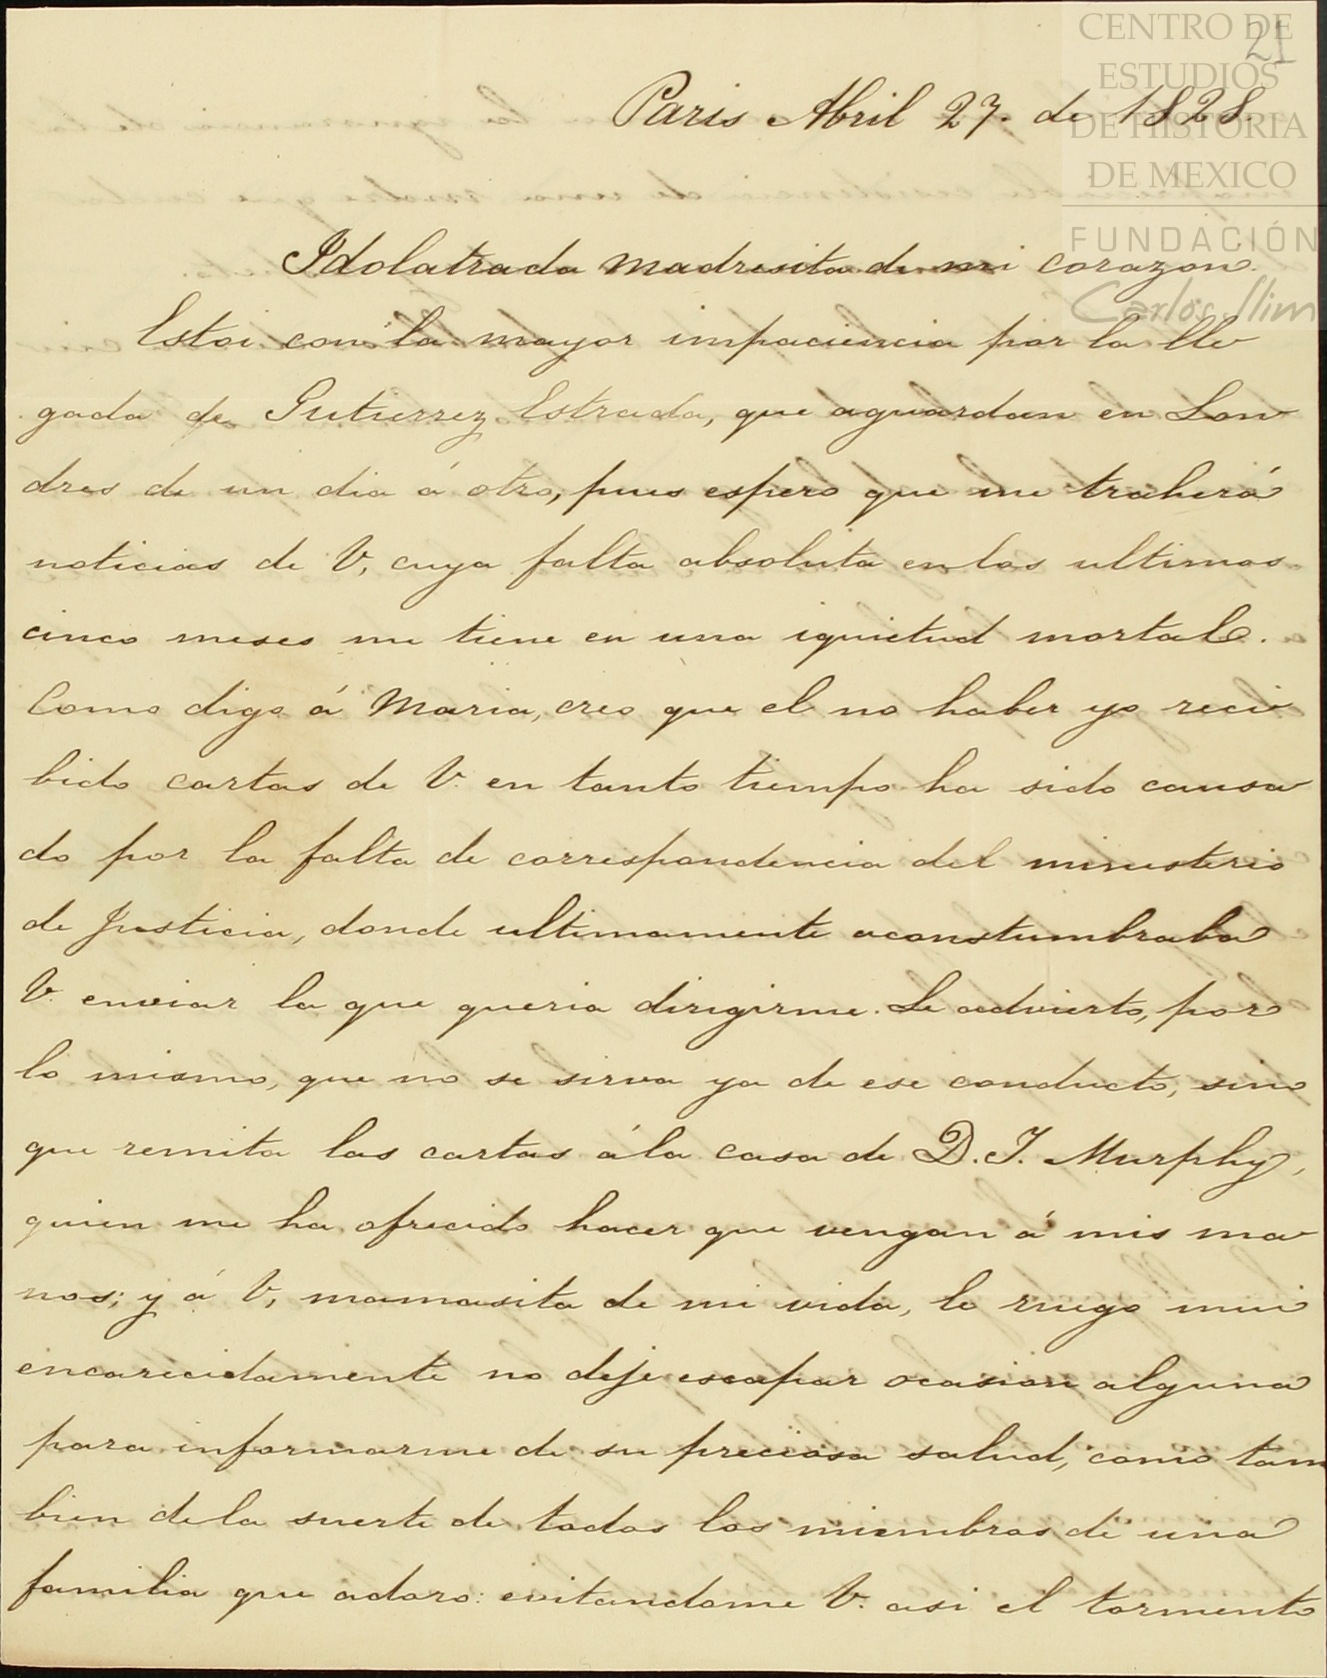 CENTRO DE
ESTUDIOS
DE HISTORIA
DE MEXICO
FUNDACIÓN
Carlos Slim
21
Paris Abril 27. de 1828.
Idolatrada madresita de mi corazon.
Estoi con la mayor impaciencia por la lle
gada de Gutierrez Estrada, que aguardan en Lon
dres de un dia á otro, pues espero que me traherá
noticias de V, cuya falta absoluta en los ultimos
cinco meses me tiene en una iquietud mortal.
Como digo á Maria, creo que el no haber yo reci
bido cartas de V. en tanto tiempo ha sido causa
do por la falta de correspondencia del ministerio
de Justicia, donde ultimamente aconstumbraba
V. enviar la que queria dirigirme. Le advierto, por
lo mismo, que no se sirva ya de ese conducto, sino
que remita las cartas á la casa de D. T. Murphy,
quien me ha ofrecido hacer que vengan á mis ma
nos; y á V, mamasita de mi vida, le ruego mui
encarecidamente no deje escapar ocasion alguna
para informarme de su preciosa salud, como tam
bien de la suerte de todos los miembros de una
familia que adoro: evitandome V. asi el tormento